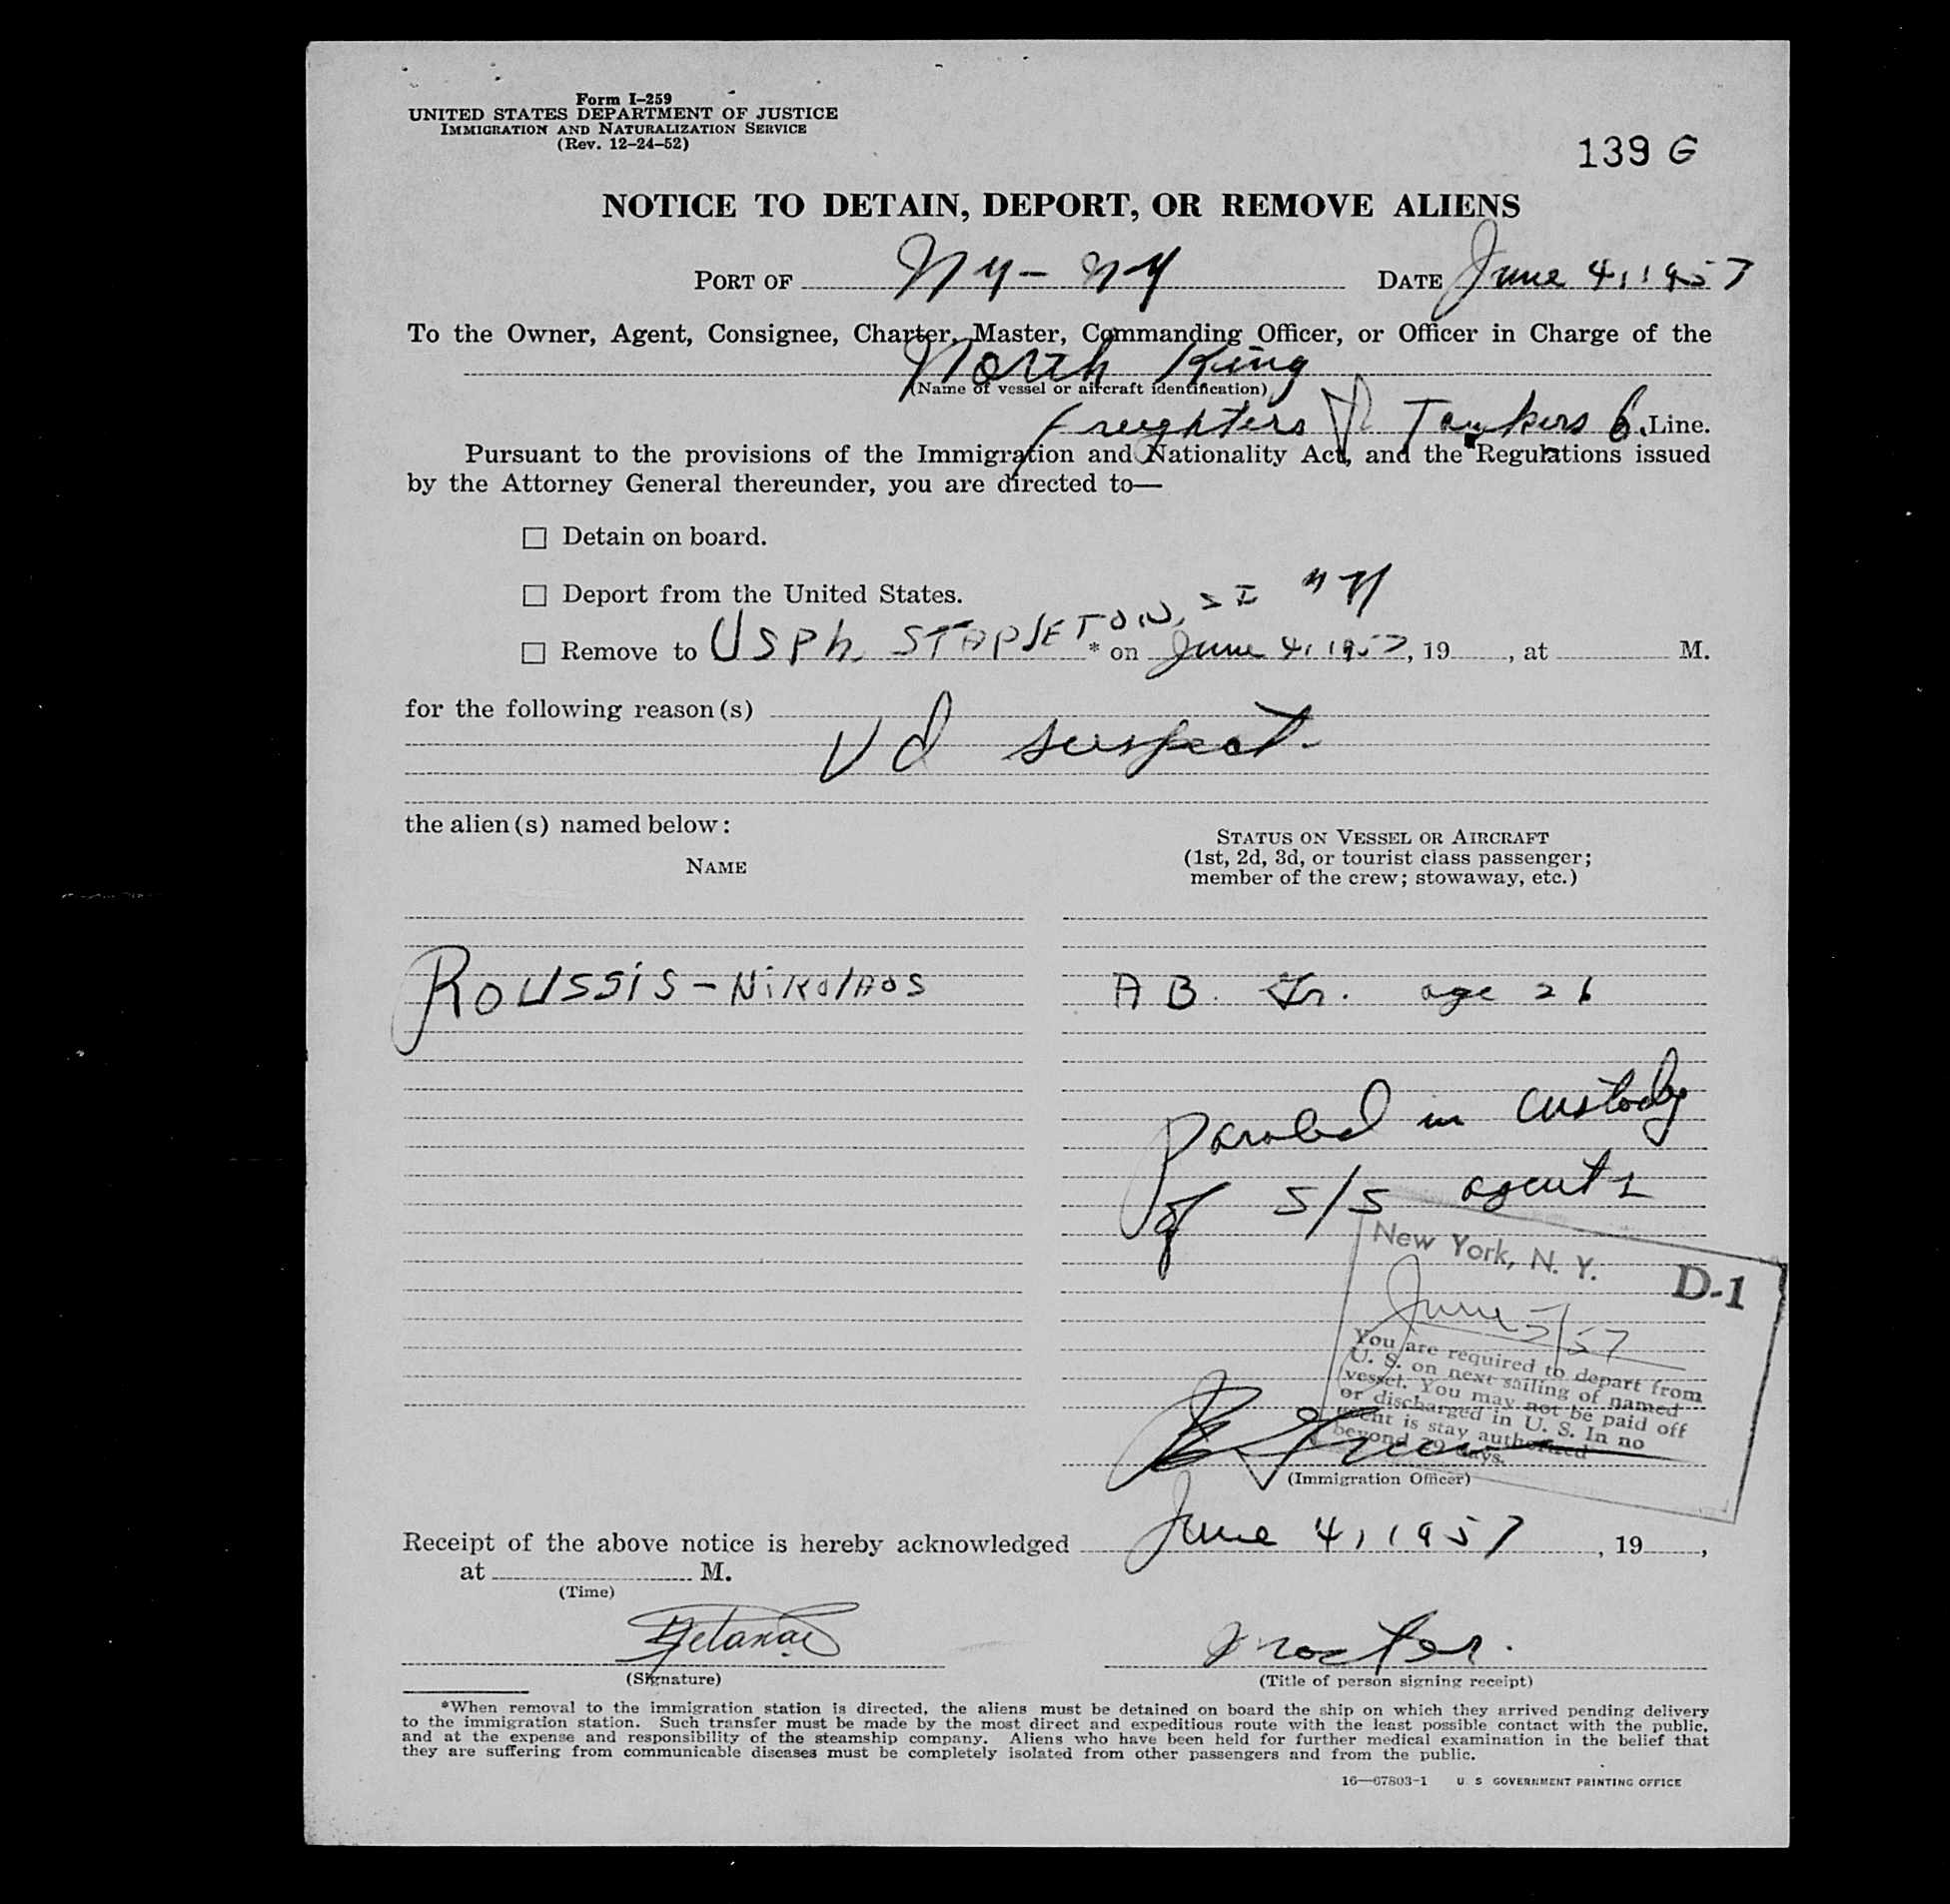 Form I-259
UNITED STATES DEPARTMENT OF JUSTICE
IMMIGRATION AND NATURALIZATION SERVICE
(Rev. 12-24-52)
139 G
NOTICE TO DETAIN, DEPORT, OR REMOVE ALIENS
PORT OF NY - NY DATE June 4, 1957
To the Owner, Agent, Consignee, Charter, Master, Commanding Officer, or Officer in Charge of the
North King
(Name of vessel or aircraft identification)
Freighters Tankers Line.
Pursuant to the provisions of the Immigration and Nationality Act, and the Regulations issued
by the Attorney General thereunder, you are directed to—
☐ Detain on board.
☐ Deport from the United States.
☐ Remove to USPh. STAPLETON, SI NY * on June 4, 1957, 19 , at M.
for the following reason(s)
Vd suspect.
the alien(s) named below:
NAME
STATUS ON VESSEL OR AIRCRAFT
(1st, 2d, 3d, or tourist class passenger;
member of the crew; stowaway, etc.)
ROUSSIS - NIKOLAOS AB. Gr. age 26
Paroled in custody
of S/S agents
New York, N. Y. D-1
June 5/57
You are required to depart from
U. S. on next sailing of named
vessel. You may not be paid off
or discharged in U. S. In no
event is stay authorized
beyond 29 days.
(Immigration Officer)
Receipt of the above notice is hereby acknowledged June 4, 1957, 19 ,
at M.
(Time)
Master.
(Signature) (Title of person signing receipt)
*When removal to the immigration station is directed, the aliens must be detained on board the ship on which they arrived pending delivery
to the immigration station. Such transfer must be made by the most direct and expeditious route with the least possible contact with the public,
and at the expense and responsibility of the steamship company. Aliens who have been held for further medical examination in the belief that
they are suffering from communicable diseases must be completely isolated from other passengers and from the public.
16—67803-1 U. S. GOVERNMENT PRINTING OFFICE